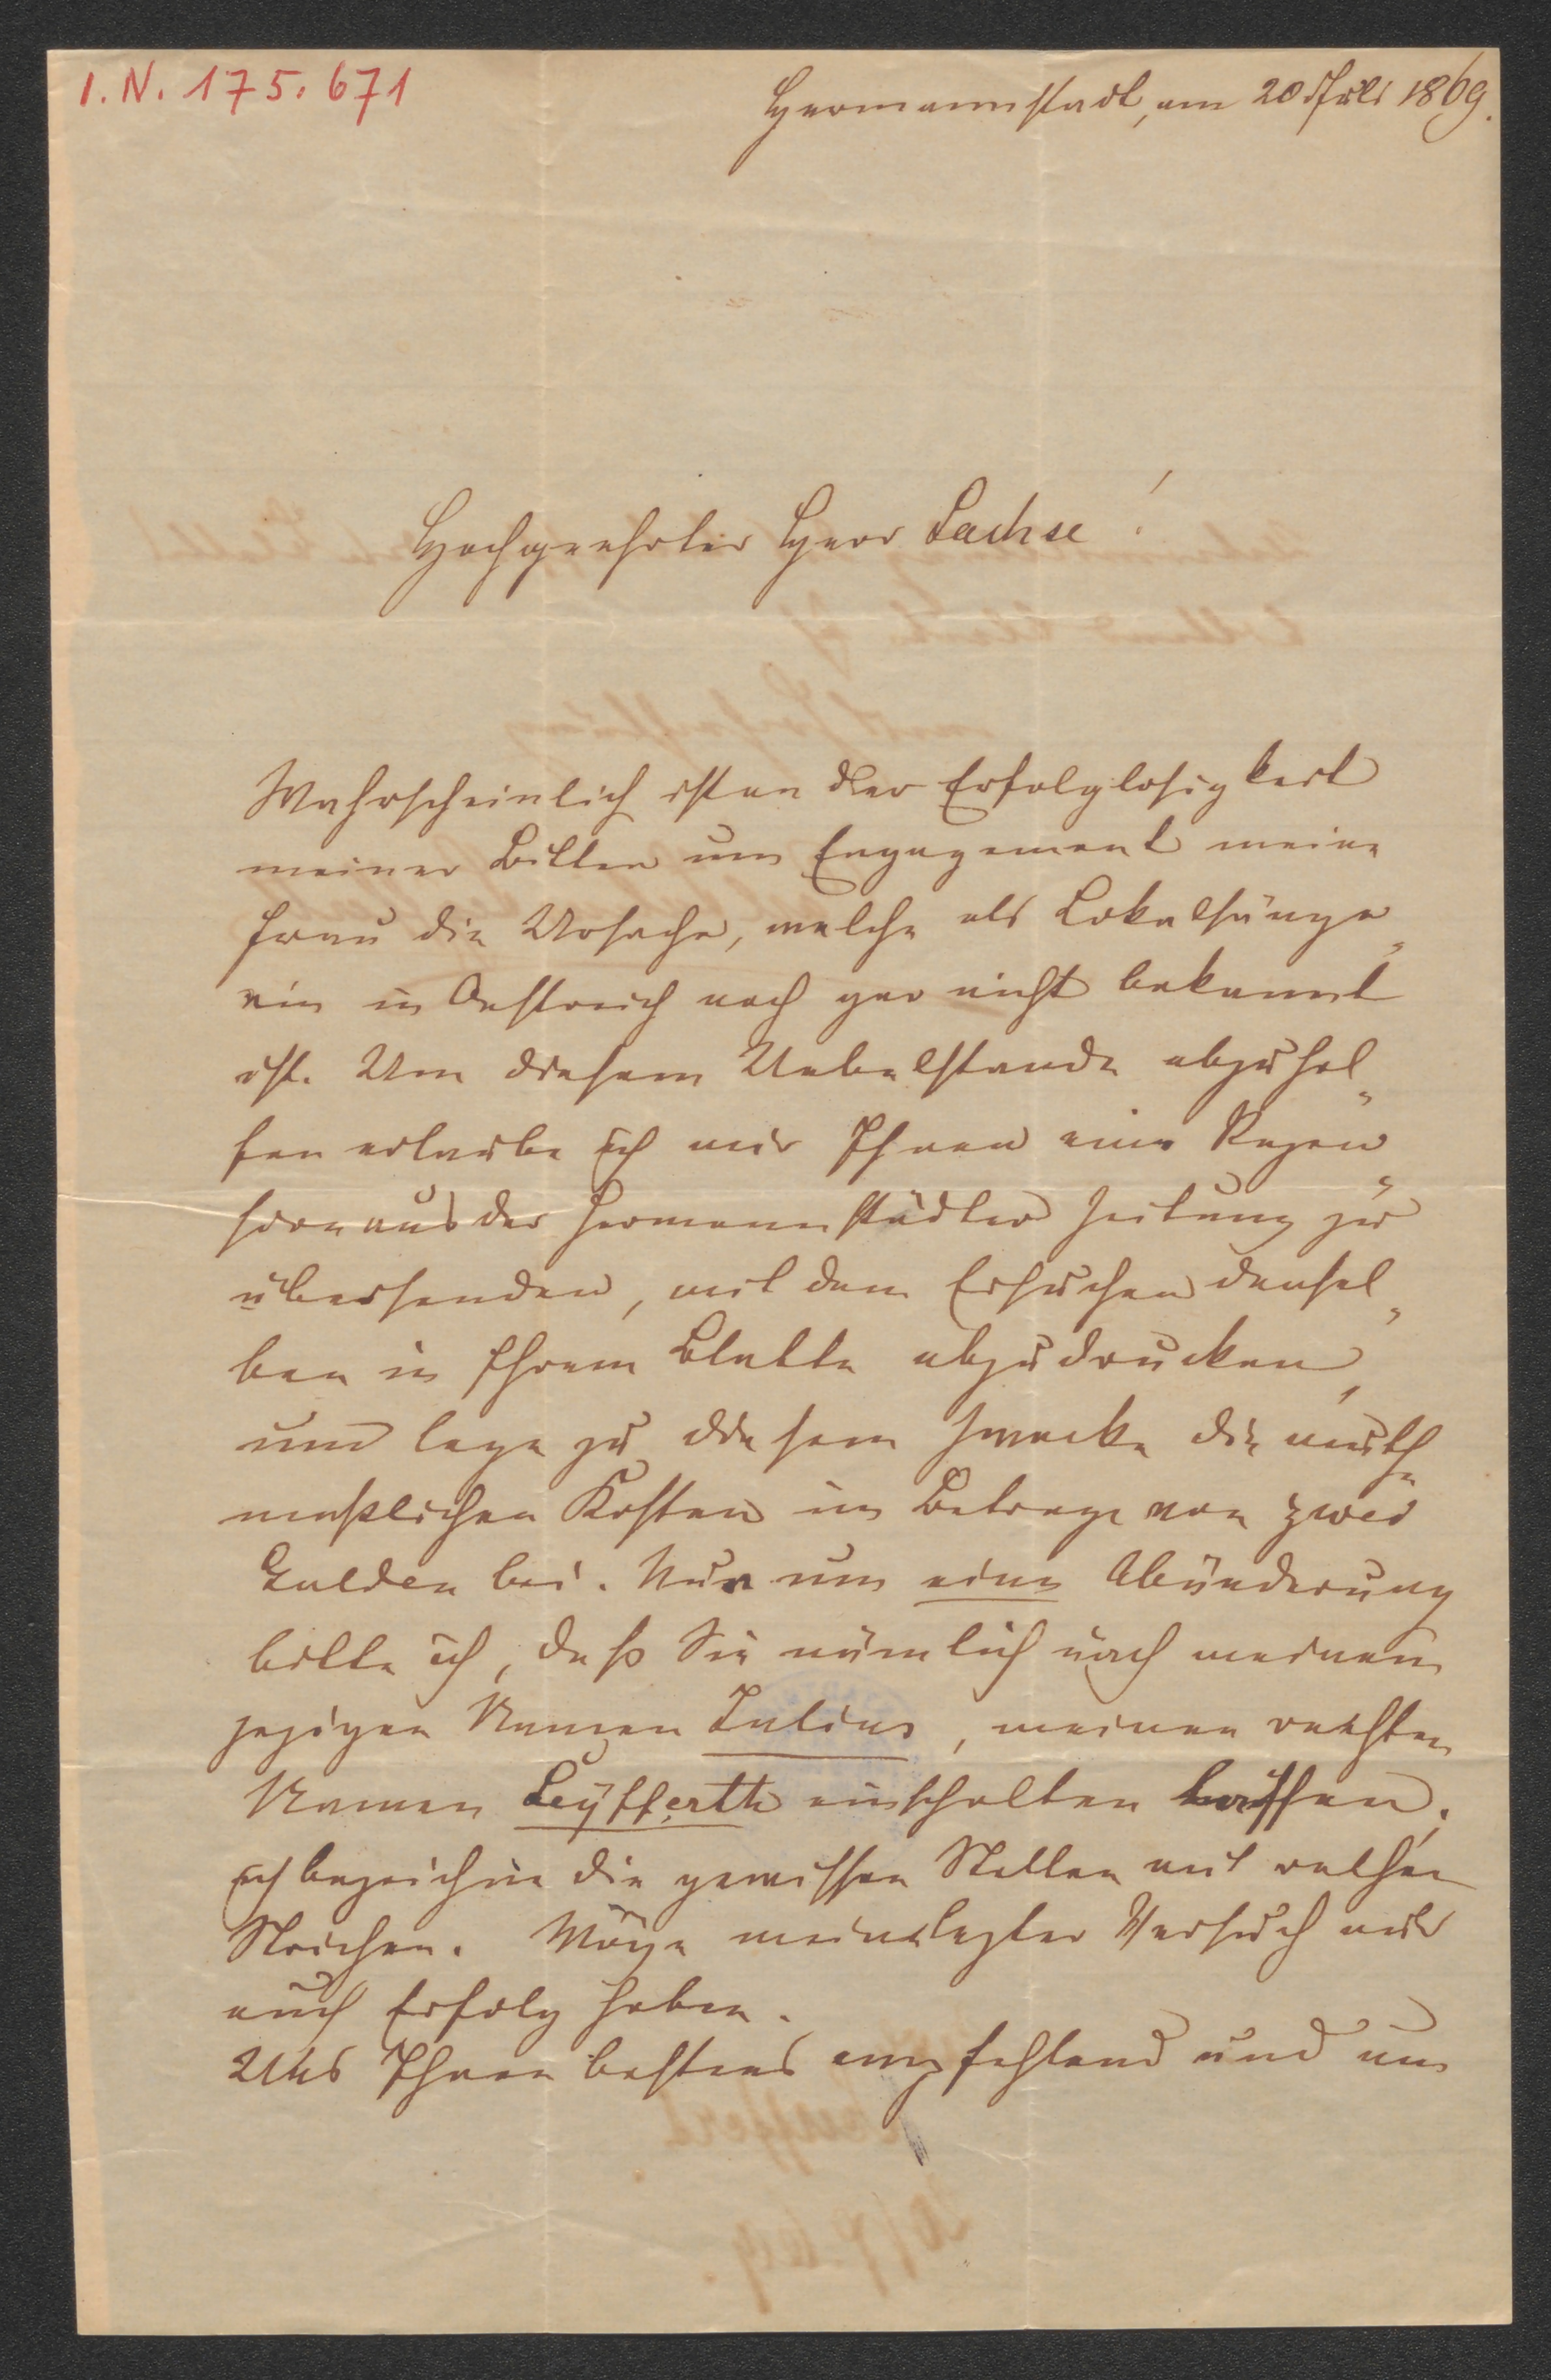 I. N. 175.671
Hermannstadt, am 20 Juli 1869.
Hochgeehrter Herr Sachse!
Wahrscheinlich ist an der Erfolglosigkeit
meiner Bitten um Engagement meine
Frau die Ursache, welche als Lokalsänge„
rin in Oestreich noch gar nicht bekannt
ist. Um diesem Uebelstande abzuhel„
fen erlaube ich mir Ihnen eine Rezen„
sion aus der Hermannstädter Zeitung zu
übersenden, mit dem Ersuchen densel„
ben in Ihrem Blatte abzudrucken,
und lege zu diesem Zwecke die muth„
maßlichen Kosten im Betrage von zwei
Gulden bei. Nur um eine Abänderung
bitte ich, daß Sie nämlich nach meinem
jezigen Namen Julius, meinen rechten
Namen Seÿfferth einschalten lassen;
ich bezeichne die gewissen Stellen mit rothen
Strichen. Möge mein lezter Versuch nur
auch Erfolg haben.
Uns Ihnen bestens empfehlend und um